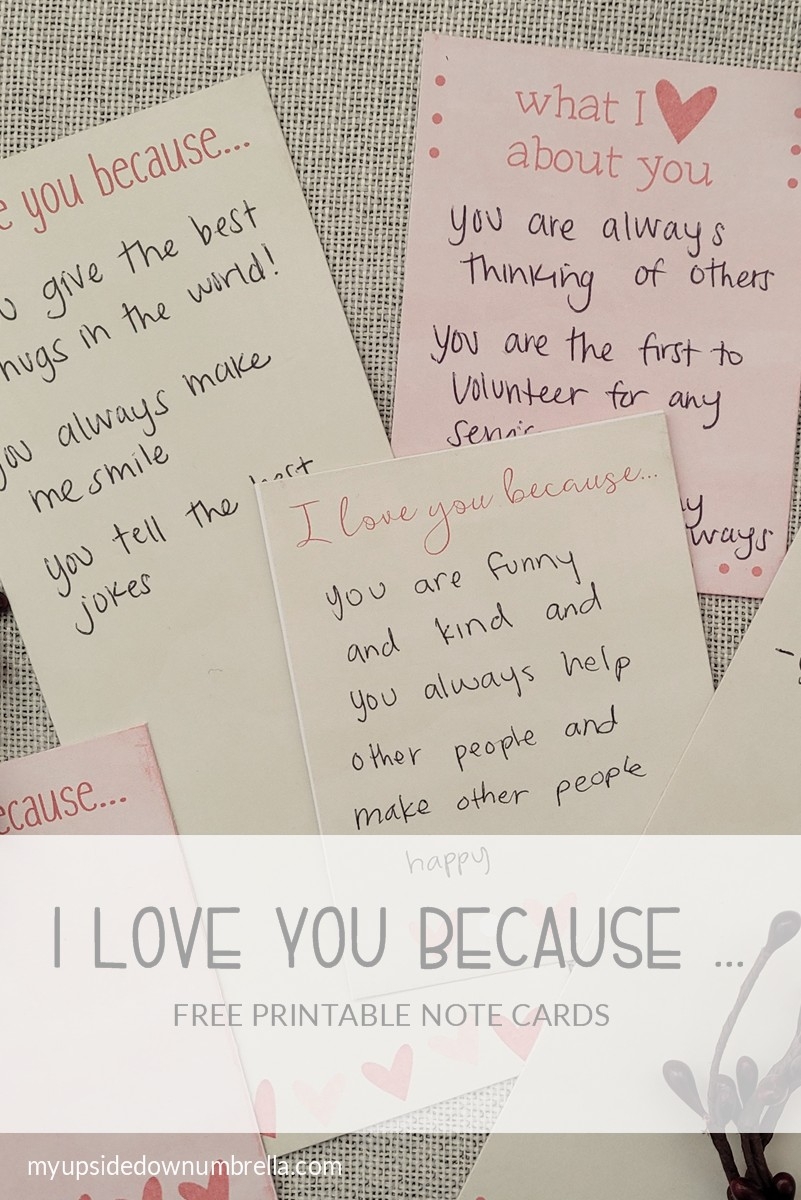 you because...
give the best
hugs in the world!
you always make
me smile
you tell the best
jokes
what I
about you
you are always
thinking of others
you are the first to
volunteer for any
ways
I love you because...
you are funny
and kind and
you always help
other people and
make other people
happy
because...
I LOVE YOU BECAUSE ...
FREE PRINTABLE NOTE CARDS
myupsidedownumbrella.com